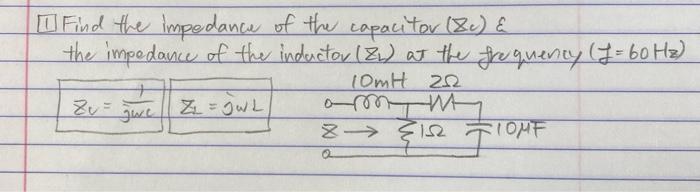 1 Find the impedance of the capacitor (Zc) &
the impedance of the inductor (ZL) at the frequency (f=60Hz)
10mH 2Ω
Zc = 1/jwc ZL = jwL
Z → 1Ω 10MF